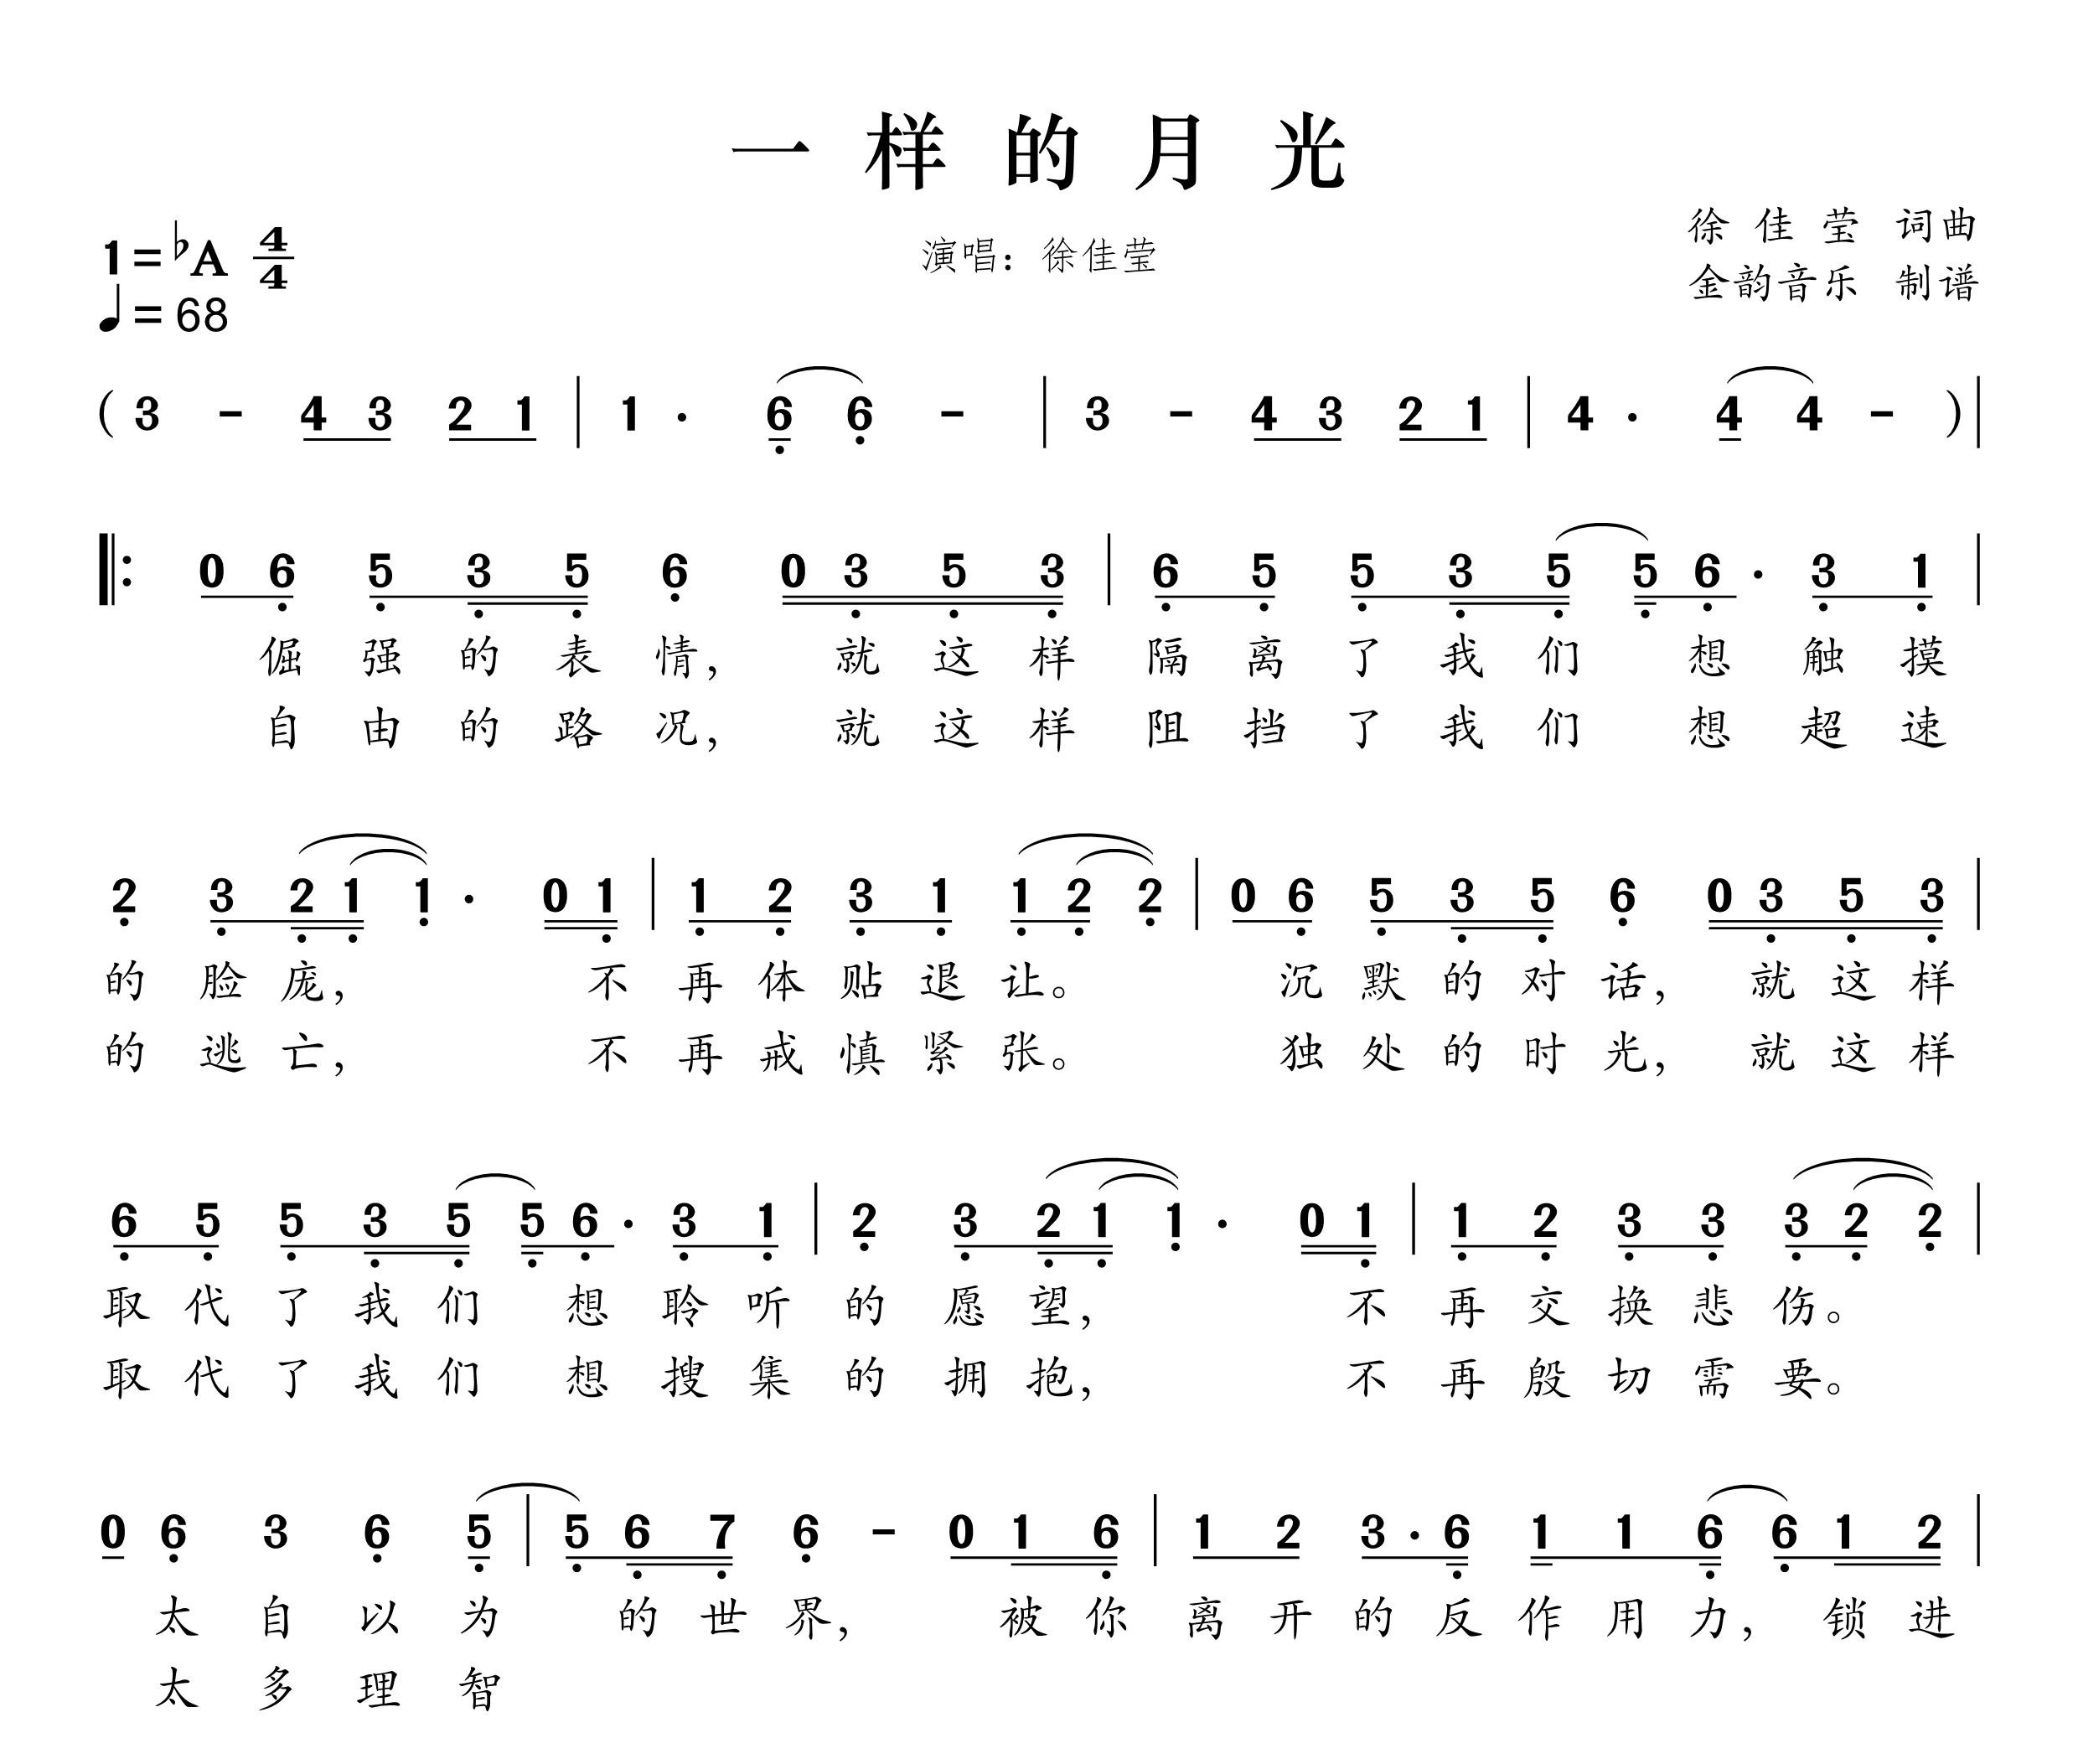 一样的月光
1=♭A 4/4
演唱：徐佳莹
徐佳莹 词曲
金韵音乐 制谱
♩=68
( 3 - 4 3 2 1 | 1 · 6 6 - | 3 - 4 3 2 1 | 4 · 4 4 - ) |
‖: 0 6 5 3 5 6 0 3 5 3 | 6 5 5 3 5 5 6 · 3 1 |
倔强的表情，就这样隔离了我们想触摸
自由的路况，就这样阻挡了我们想超速
2 3 2 1 1 · 0 1 | 1 2 3 1 1 2 2 | 0 6 5 3 5 6 0 3 5 3 |
的脸庞，不再体贴退让。沉默的对话，就这样
的逃亡，不再戒慎紧张。独处的时光，就这样
6 5 5 3 5 5 6 · 3 1 | 2 3 2 1 1 · 0 1 | 1 2 3 3 3 2 2 |
取代了我们想聆听的愿望，不再交换悲伤。
取代了我们想搜集的拥抱，不再殷切需要。
0 6 3 6 5 | 5 6 7 6 - 0 1 6 | 1 2 3 · 6 1 1 6 6 1 2 |
太自以为的世界，被你离开的反作用力，锁进
太多理智